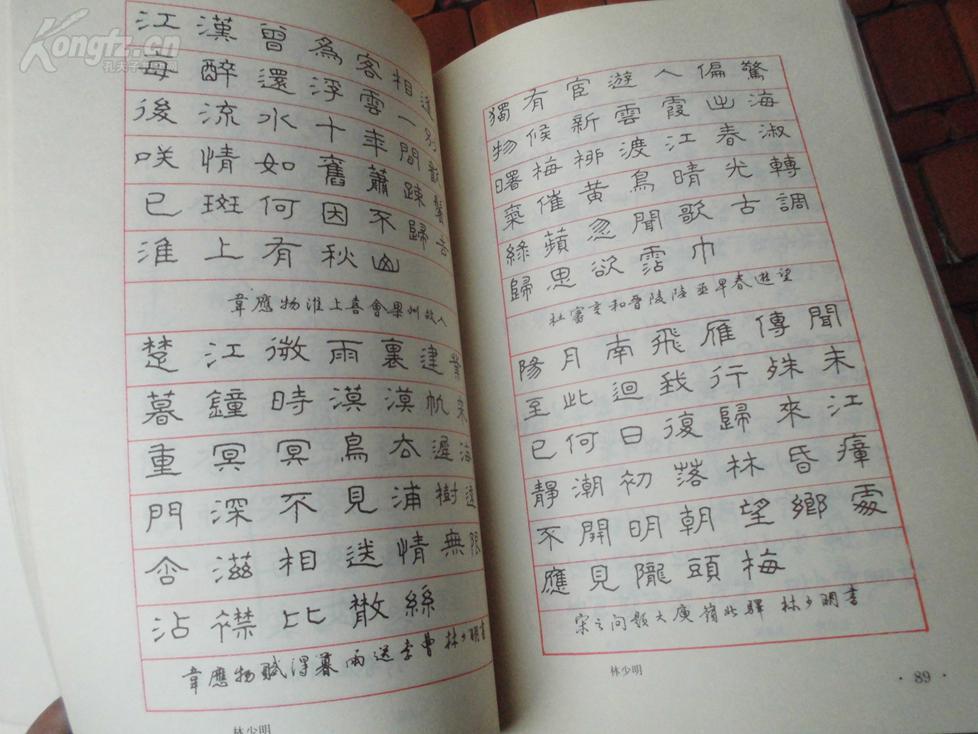 Kongfz.cn
江漢曾為客相逢
每醉還浮雲一別
後流水十年間歡
咲情如舊蕭疎鬢
已斑何因不歸去
淮上有秋山
韋應物淮上喜會梁州故人
楚江微雨裏建業
暮鐘時漠漠帆來
重冥冥鳥去遲海
門深不見浦樹遠
含滋相送情無限
沾襟比散絲
韋應物賦得暮雨送李曹 林少明書
林少明
獨有宦遊人偏驚
物候新雲霞出海
曙梅柳渡江春淑
氣催黃鳥晴光轉
綠蘋忽聞歌古調
歸思欲霑巾
杜審言和晉陵陸丞早春遊望
陽月南飛雁傳聞
至此迴我行殊未
已何日復歸來江
靜潮初落林昏瘴
不開明朝望鄉處
應見隴頭梅
宋之問題大廣嶺北驛 林少明書
林少明
·89·